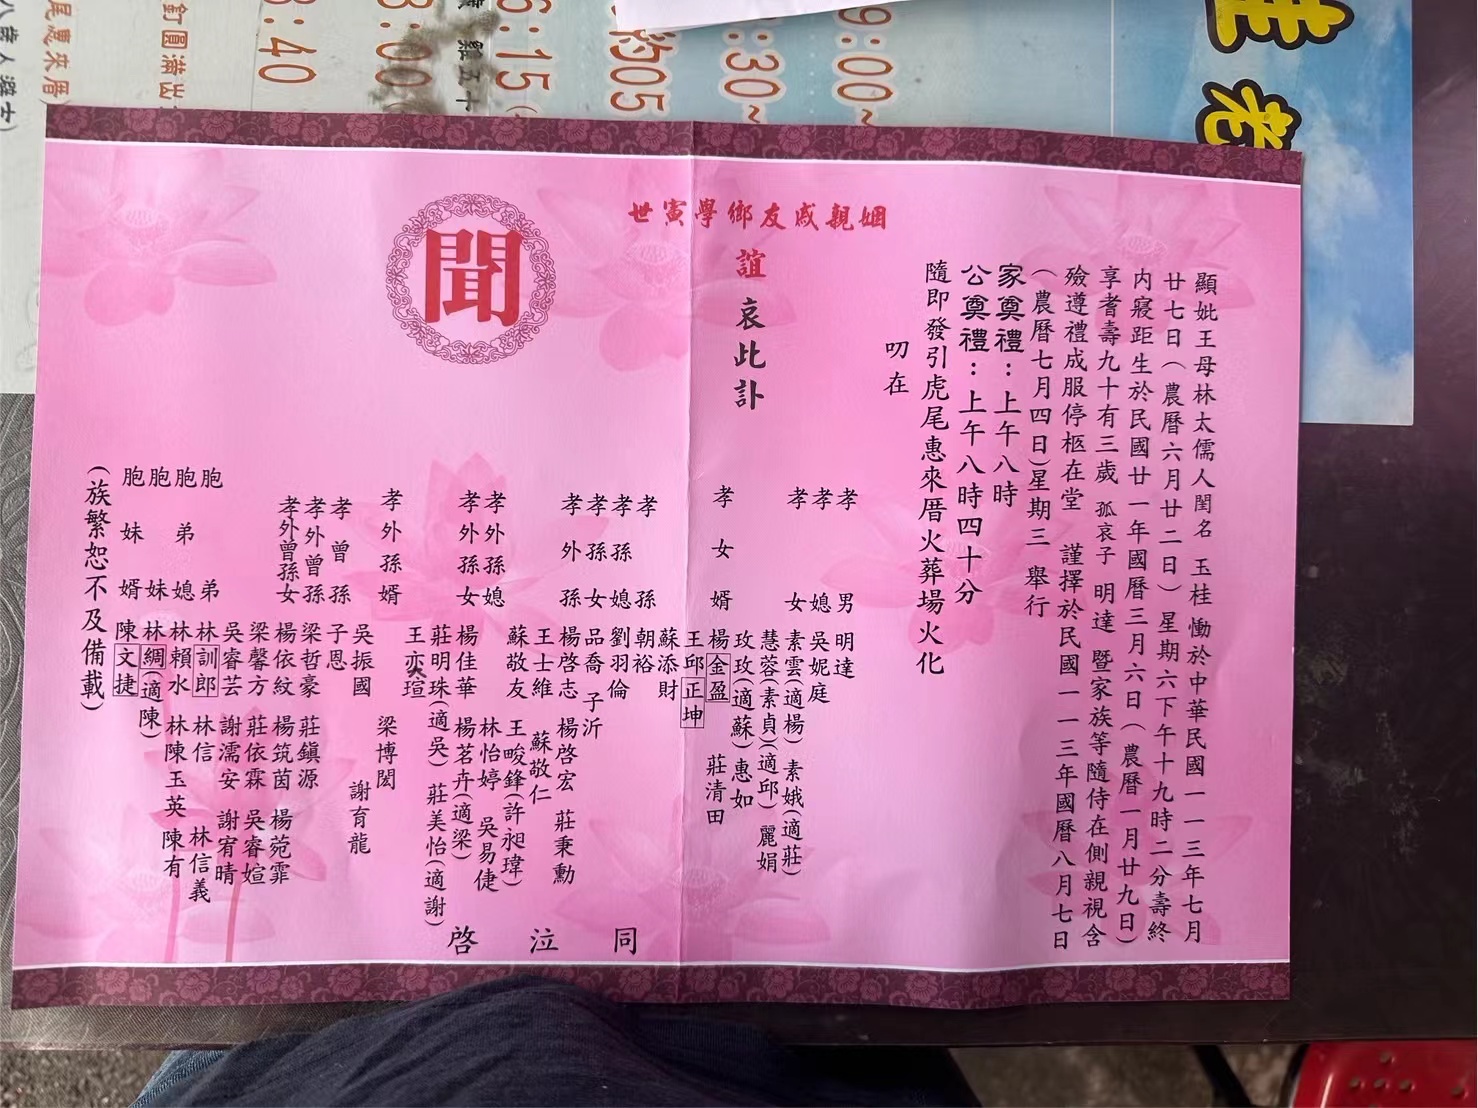 顯妣王母林太儒人閨名 玉桂 慟於中華民國一一三年七月
廿七日（農曆六月廿二日）星期六下午十九時二分壽終
內寢距生於民國廿一年國曆三月六日（農曆一月廿九日）
享耆壽九十有三歲 孤哀子 明達 暨家族等隨侍在側親視含
殮遵禮成服停柩在堂 謹擇於民國一一三年國曆八月七日
（農曆七月四日）星期三 舉行
家奠禮：上午八時
公奠禮：上午八時四十分
隨即發引虎尾惠來厝火葬場火化
叨在
世寅學鄉友戚親姻
誼 哀此訃
聞
孝男 明達
孝媳 吳妮庭
孝女 素雲(適楊) 素娥(適莊)
慧蓉(素貞)(適邱) 麗娟
玫玫(適蘇) 惠如
孝女婿 楊金盈 莊清田
王邱正坤
蘇添財
孝孫 朝裕
孝孫媳 劉羽倫
孝孫女 品喬 子沂
孝外孫 楊啓志 楊啓宏 莊秉勳
王士維 蘇敬仁
蘇敬友 王畯鋒(許昶瑋)
孝外孫媳 林怡婷 吳易倢
孝外孫女 楊佳華 楊茗卉(適梁)
莊明珠(適吳) 莊美怡(適謝)
王奕瑄
孝外孫婿 梁博閎
吳振國 謝育龍
孝曾孫 子恩
孝外曾孫 梁哲豪 莊鎮源
孝外曾孫女 楊依紋 楊筑茵 楊菀霏
梁馨方 莊依霖 吳睿媗
吳睿芸 謝濡安 謝宥晴
胞弟 林訓郎 林信 林信義
胞弟媳 林賴水 林陳玉英 陳有
胞妹 林綢(適陳)
胞妹婿 陳文捷
(族繁恕不及備載)
同 泣 啓
9:00~
:30~
約05
6:15(
3:00(
:40
釘圓滿出
尾惠來厝)
八歲人避士)
雞五十
桂
老